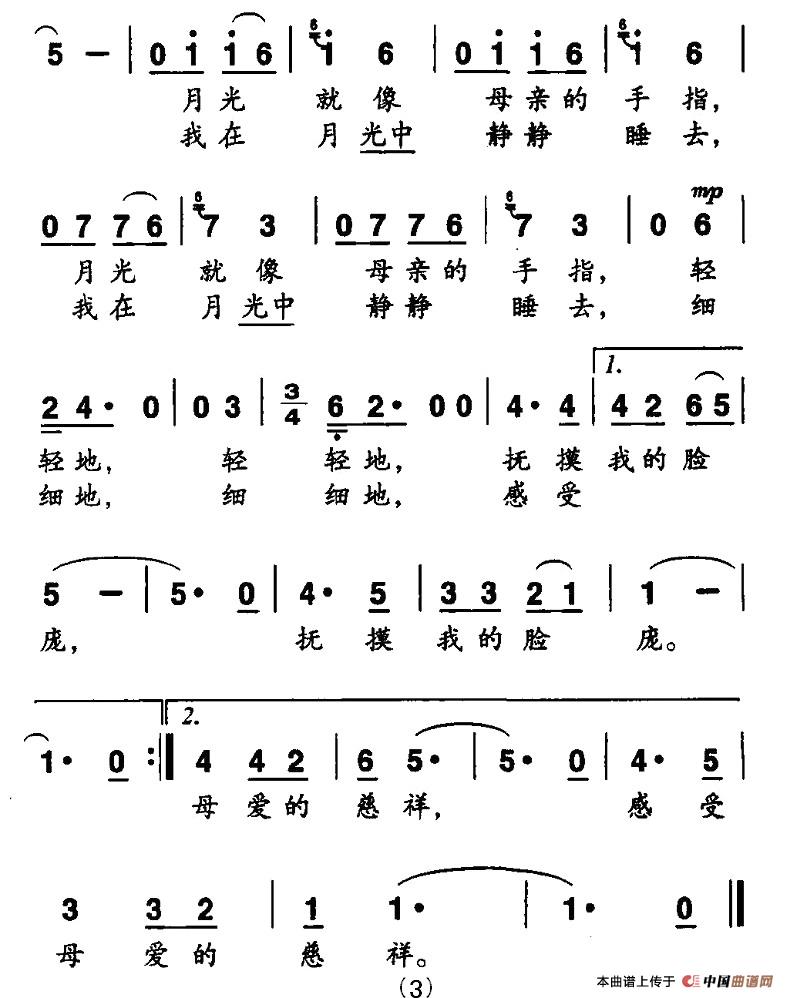 5 — | 0 i i 6 | 6 i 6 | 0 i i 6 | 6 i 6 |
月光 就像 母亲的 手指，
我在 月光中 静静 睡去，
mp
0 7 7 6 | 6 7 3 | 0 7 7 6 | 6 7 3 | 0 6 |
月光 就像 母亲的 手指， 轻
我在 月光中 静静 睡去， 细
1.
2 4· 0 | 0 3 | 3/4 6 2· 0 0 | 4· 4 | 4 2 6 5 |
轻地， 轻 轻地， 抚摸 我的脸
细地， 细 细地， 感受
5 — | 5· 0 | 4· 5 | 3 3 2 1 | 1 — |
庞， 抚摸 我的脸 庞。
2.
1· 0 :| 4 4 2 | 6 5· | 5· 0 | 4· 5 |
母爱的 慈祥， 感受
3 3 2 | 1 1· | 1· 0 ||
母爱的 慈祥。
（3）
本曲谱上传于 中国曲谱网